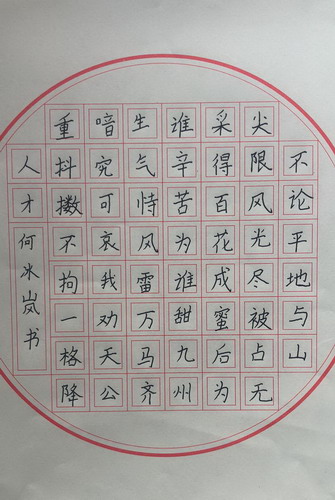 不论平地与山
尖限风光尽被占无
采得百花成蜜后为
谁辛苦为谁甜九州
生气恃风雷万马齐
喑究可哀我劝天公
重抖擞不拘一格降
人才何冰岚书